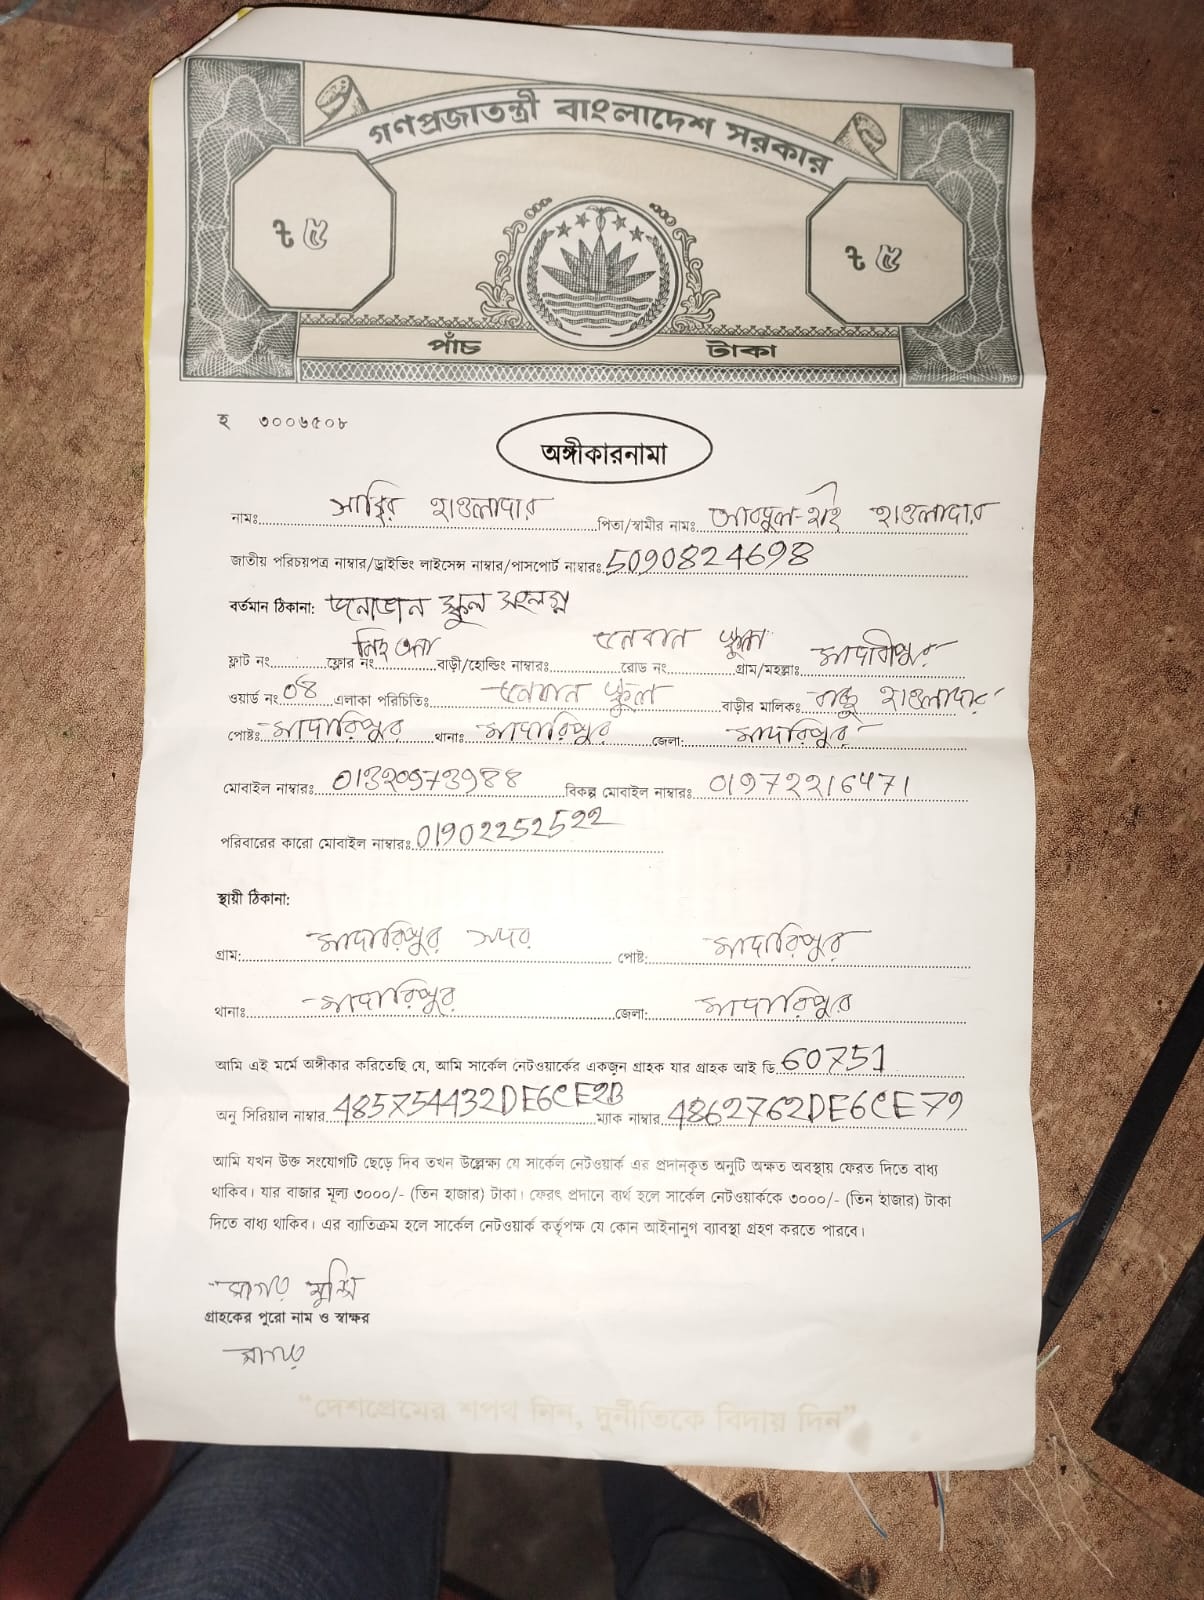 গণপ্রজাতন্ত্রী বাংলাদেশ সরকার
৳ ৫ ৳ ৫
পাঁচ টাকা
হ ৩০০৬৫০৮
অঙ্গীকারনামা
নামঃ সাব্বির হাওলাদার পিতা/স্বামীর নামঃ আবদুল-হাই হাওলাদার
জাতীয় পরিচয়পত্র নাম্বার/ড্রাইভিং লাইসেন্স নাম্বার/পাসপোর্ট নাম্বারঃ 5090824698
বর্তমান ঠিকানা: স্কুল সংলগ্ন
ফ্লাট নং ফ্লোর নং বাড়ী/হোল্ডিং নাম্বারঃ রোড নং স্কুল গ্রাম/মহল্লাঃ মাদারীপুর
ওয়ার্ড নং 04 এলাকা পরিচিতিঃ স্কুল বাড়ীর মালিকঃ হাওলাদার
পোষ্টঃ মাদারিপুর থানাঃ মাদারিপুর জেলা: মাদারিপুর
মোবাইল নাম্বারঃ বিকল্প মোবাইল নাম্বারঃ
পরিবারের কারো মোবাইল নাম্বারঃ 01902252522
স্থায়ী ঠিকানা:
গ্রাম: মাদারিপুর সদর পোষ্ট: মাদারিপুর
থানাঃ মাদারিপুর জেলা: মাদারিপুর
আমি এই মর্মে অঙ্গীকার করিতেছি যে, আমি সার্কেল নেটওয়ার্কের একজন গ্রাহক যার গ্রাহক আই ডি 60751
অনু সিরিয়াল নাম্বার 485754432DE6CE2B ম্যাক নাম্বার 4862762DE6CE79
আমি যখন উক্ত সংযোগটি ছেড়ে দিব তখন উল্লেক্ষ্য যে সার্কেল নেটওয়ার্ক এর প্রদানকৃত অনুটি অক্ষত অবস্থায় ফেরত দিতে বাধ্য
থাকিব। যার বাজার মূল্য ৩০০০/- (তিন হাজার) টাকা। ফেরৎ প্রদানে ব্যর্থ হলে সার্কেল নেটওয়ার্ককে ৩০০০/- (তিন হাজার) টাকা
দিতে বাধ্য থাকিব। এর ব্যতিক্রম হলে সার্কেল নেটওয়ার্ক কর্তৃপক্ষ যে কোন আইনানুগ ব্যাবস্থা গ্রহণ করতে পারবে।
সাগর মুন্সি
গ্রাহকের পুরো নাম ও স্বাক্ষর
সাগর
“দেশপ্রেমের শপথ নিন, দুর্নীতিকে বিদায় দিন”